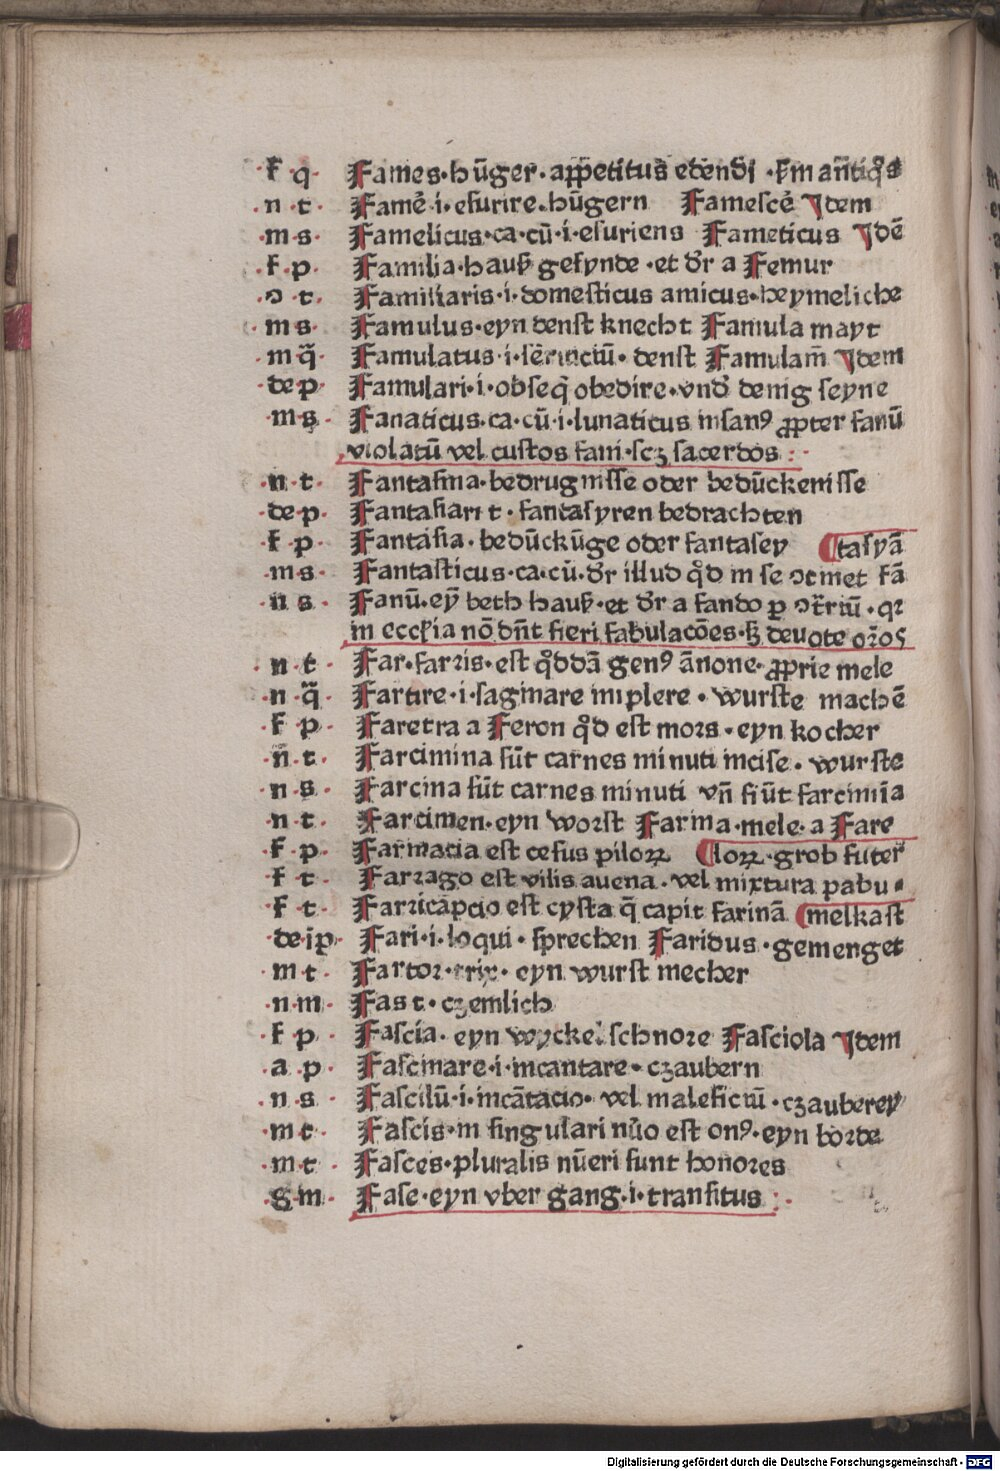 f q Fames·hūger·appetitus edendi ·fm antiqͦs
·n·t· Famē·i·esurire·hūgern Famescē Idem
·m·s· Famelicus·ca·cū·i·esuriens Fameticus Idē
·f·p· Familia·hauß gesynde·et dr̄ a Femur
·ɔ t· Familiaris·i·domesticus amicus·heymeliche
·m s· Famulus·eyn denst knecht Famula mayt
·m q̄· Famulatus·i·seruiciū· denst Famulam̄ Idem
de p· Famulari·i·obseq̄ obedire·vnd̄ denig seyne
·m s· Fanaticus·ca·cū·i·lunaticus insanꝰ ꝓpter fanū
violatū vel custos fani·scʒ sacerdos :·
·n·t· Fantasma·bedrugnisse oder bedūckenisse
de p· Fantasiari t·fantasyren bedrachten
·f p· Fantasia·bedūckūge oder fantasey ¶tasyā
·m s· Fantasticus·ca·cū·dr̄ illud qͦd in se ɔtinet fā
·n s· Fanū·eȳ beth hauß·et dr̄ a fando p ɔtr̄iū·qꝛ
in eccl̄ia nō dn̄t fieri fabulacōes·sʒ deuote orōs
·n t· Far·farris·est qͦddā genꝰ ānone·ꝓprie mele
·n q̄· Fartire·i·saginare implere·wurste machē
·f p· Faretra a Feron qͦd est mors·eyn kocher
·n·t· Farcimina sūt carnes minuti incise·wurste
·n s· Farcina sūt carnes minuti vn̄ fiūt farcimīa
·n t· Farcimen·eyn worst Farina·mele·a Fare
·f p· Farmacia est cesus piloꝝ ¶loꝝ·grob futer
·f t· Farrago est vilis auena·vel mixtura pabu⸗
·f t· Farricapcio est cysta q̄ capit farinā ¶melkast
·de·ip· Fari·i·loqui·sprechen Faridus·gemenget
·m t· Fartor·trix·eyn wurst mecher
·n·m· Fast·czemlich
·f p· Fascia·eyn wyckel schnore Fasciola Idem
·a p· Fascinare·i·incantare·czaubern
·n s· Fascilū·i·incātacio·vel maleficiū·czauberey
·m t· Fascis·in singulari nūo est onꝰ·eyn borde
·m t· Fasces·pluralis nūeri sunt honores
·g m· Fase·eyn vber gang·i·transitus :·
Digitalisierung gefördert durch die Deutsche Forschungsgemeinschaft - DFG